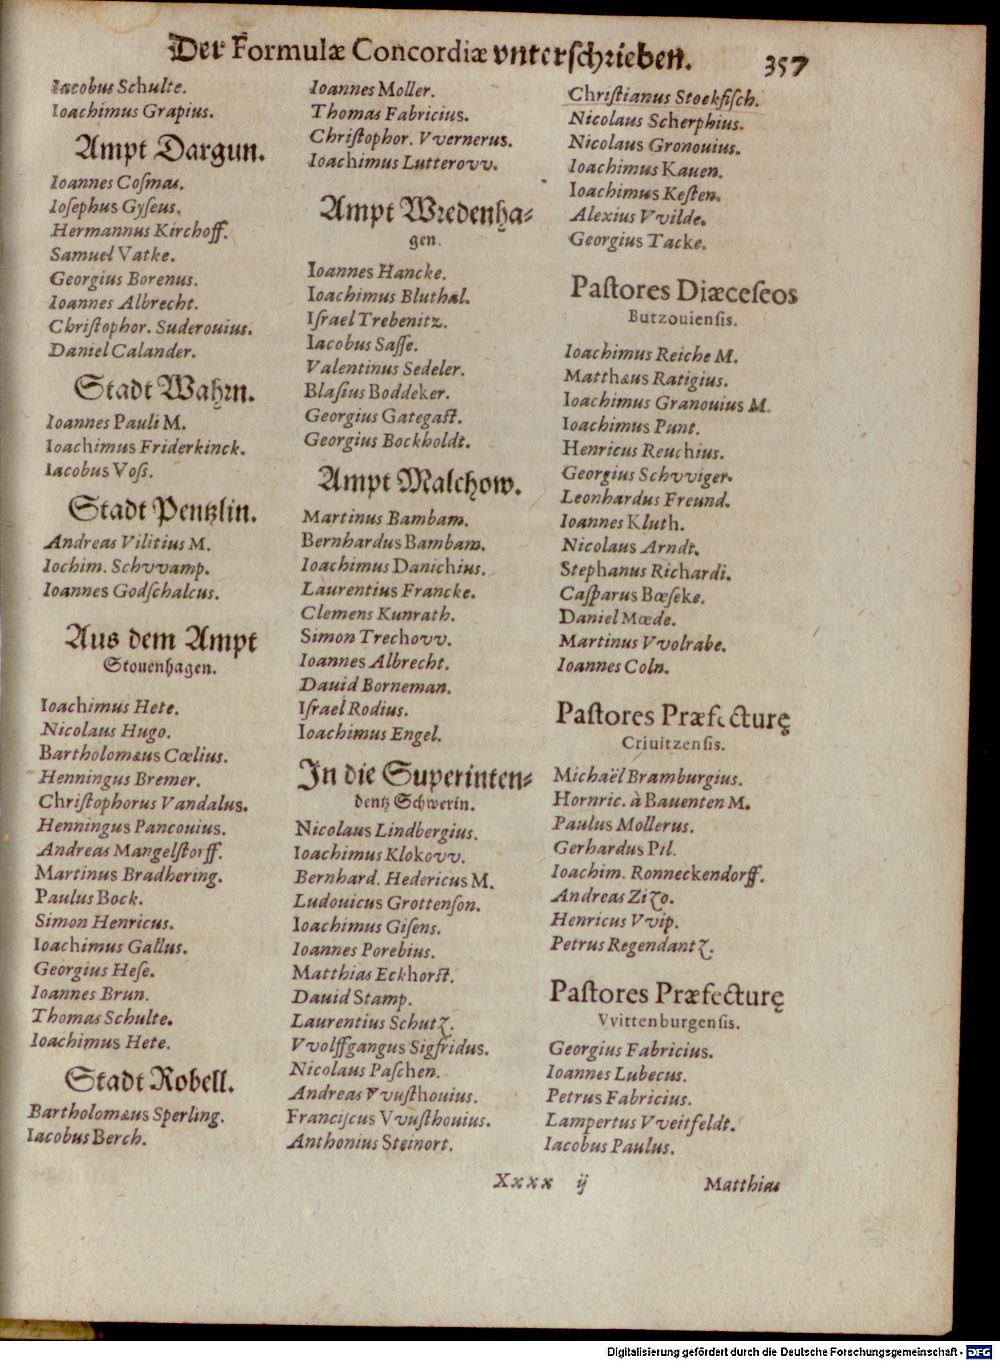 Der Formulæ Concordiæ vnterſchrieben. 357
Iacobus Schulte.
Ioachimus Grapius.
Ampt Dargun.
Ioannes Coſmas.
Ioſephus Gyſeus.
Hermannus Kirchoff.
Samuel Vatke.
Georgius Borenus.
Ioannes Albrecht.
Chriſtophor. Suderouius.
Daniel Calander.
Stadt Wahrn.
Ioannes Pauli M.
Ioachimus Friderkinck.
Iacobus Voſs.
Stadt Pentzlin.
Andreas Vilitius M.
Iochim. Schvvamp.
Ioannes Godſchalcus.
Aus dem Ampt
Stouenhagen.
Ioachimus Hete.
Nicolaus Hugo.
Bartholomæus Cœlius.
Henningus Bremer.
Chriſtophorus Vandalus.
Henningus Pancouius.
Andreas Mangelſtorff.
Martinus Bradhering.
Paulus Bock.
Simon Henricus.
Ioachimus Gallus.
Georgius Heſe.
Ioannes Brun.
Thomas Schulte.
Ioachimus Hete.
Stadt Robell.
Bartholomæus Sperling.
Iacobus Berch.
Ioannes Moller.
Thomas Fabricius.
Chriſtophor. Vvernerus.
Ioachimus Lutterovv.
Ampt Wredenha⸗
gen.
Ioannes Hancke.
Ioachimus Bluthal.
Iſrael Trebenitz.
Iacobus Saſſe.
Valentinus Sedeler.
Blaſius Boddeker.
Georgius Gategaſt.
Georgius Bockholdt.
Ampt Malchow.
Martinus Bambam.
Bernhardus Bambam.
Ioachimus Danichius.
Laurentius Francke.
Clemens Kunrath.
Simon Trechovv.
Ioannes Albrecht.
Dauid Borneman.
Iſrael Rodius.
Ioachimus Engel.
In die Superinten⸗
dentz Schwerin.
Nicolaus Lindbergius.
Ioachimus Klokovv.
Bernhard. Hedericus M.
Ludouicus Grottenſon.
Ioachimus Giſens.
Ioannes Porebius.
Matthias Eckhorſt.
Dauid Stamp.
Laurentius Schutz.
Vvolffgangus Sigfridus.
Nicolaus Paſchen.
Andreas Vvuſthouius.
Franciſcus Vvuſthouius.
Anthonius Steinort.
Chriſtianus Stoekfiſch.
Nicolaus Scherphius.
Nicolaus Gronouius.
Ioachimus Kauen.
Ioachimus Keſten.
Alexius Vvilde.
Georgius Tacke.
Paſtores Diæceſeos
Butzouienſis.
Ioachimus Reiche M.
Matthæus Ratigius.
Ioachimus Granouius M.
Ioachimus Punt.
Henricus Reuchius.
Georgius Schvviger.
Leonhardus Freund.
Ioannes Kluth.
Nicolaus Arndt.
Stephanus Richardi.
Caſparus Bœſeke.
Daniel Mœde.
Martinus Vvolrabe.
Ioannes Coln.
Paſtores Præfecturę
Criuitzenſis.
Michaël Bramburgius.
Hornric. à Bauenten M.
Paulus Mollerus.
Gerhardus Pil.
Ioachim. Ronneckendorff.
Andreas Zizo.
Henricus Vvip.
Petrus Regendantz.
Paſtores Præfecturę
Vvittenburgenſis.
Georgius Fabricius.
Ioannes Lubecus.
Petrus Fabricius.
Lampertus Vveitfeldt.
Iacobus Paulus.
Xxxx ij Matthias
Digitalisierung gefördert durch die Deutsche Forschungsgemeinschaft - DFG